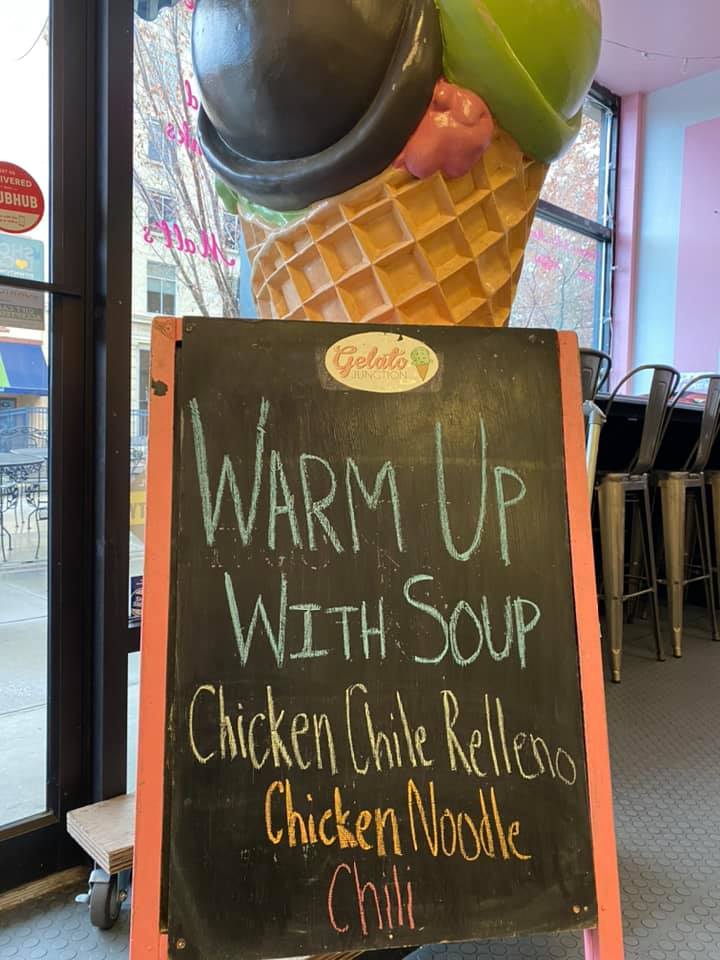 IVERED
UBHUB
Malt's
Gelato
JUNCTION
WARM UP
WITH SOUP
Chicken Chile Relleno
Chicken Noodle
Chili